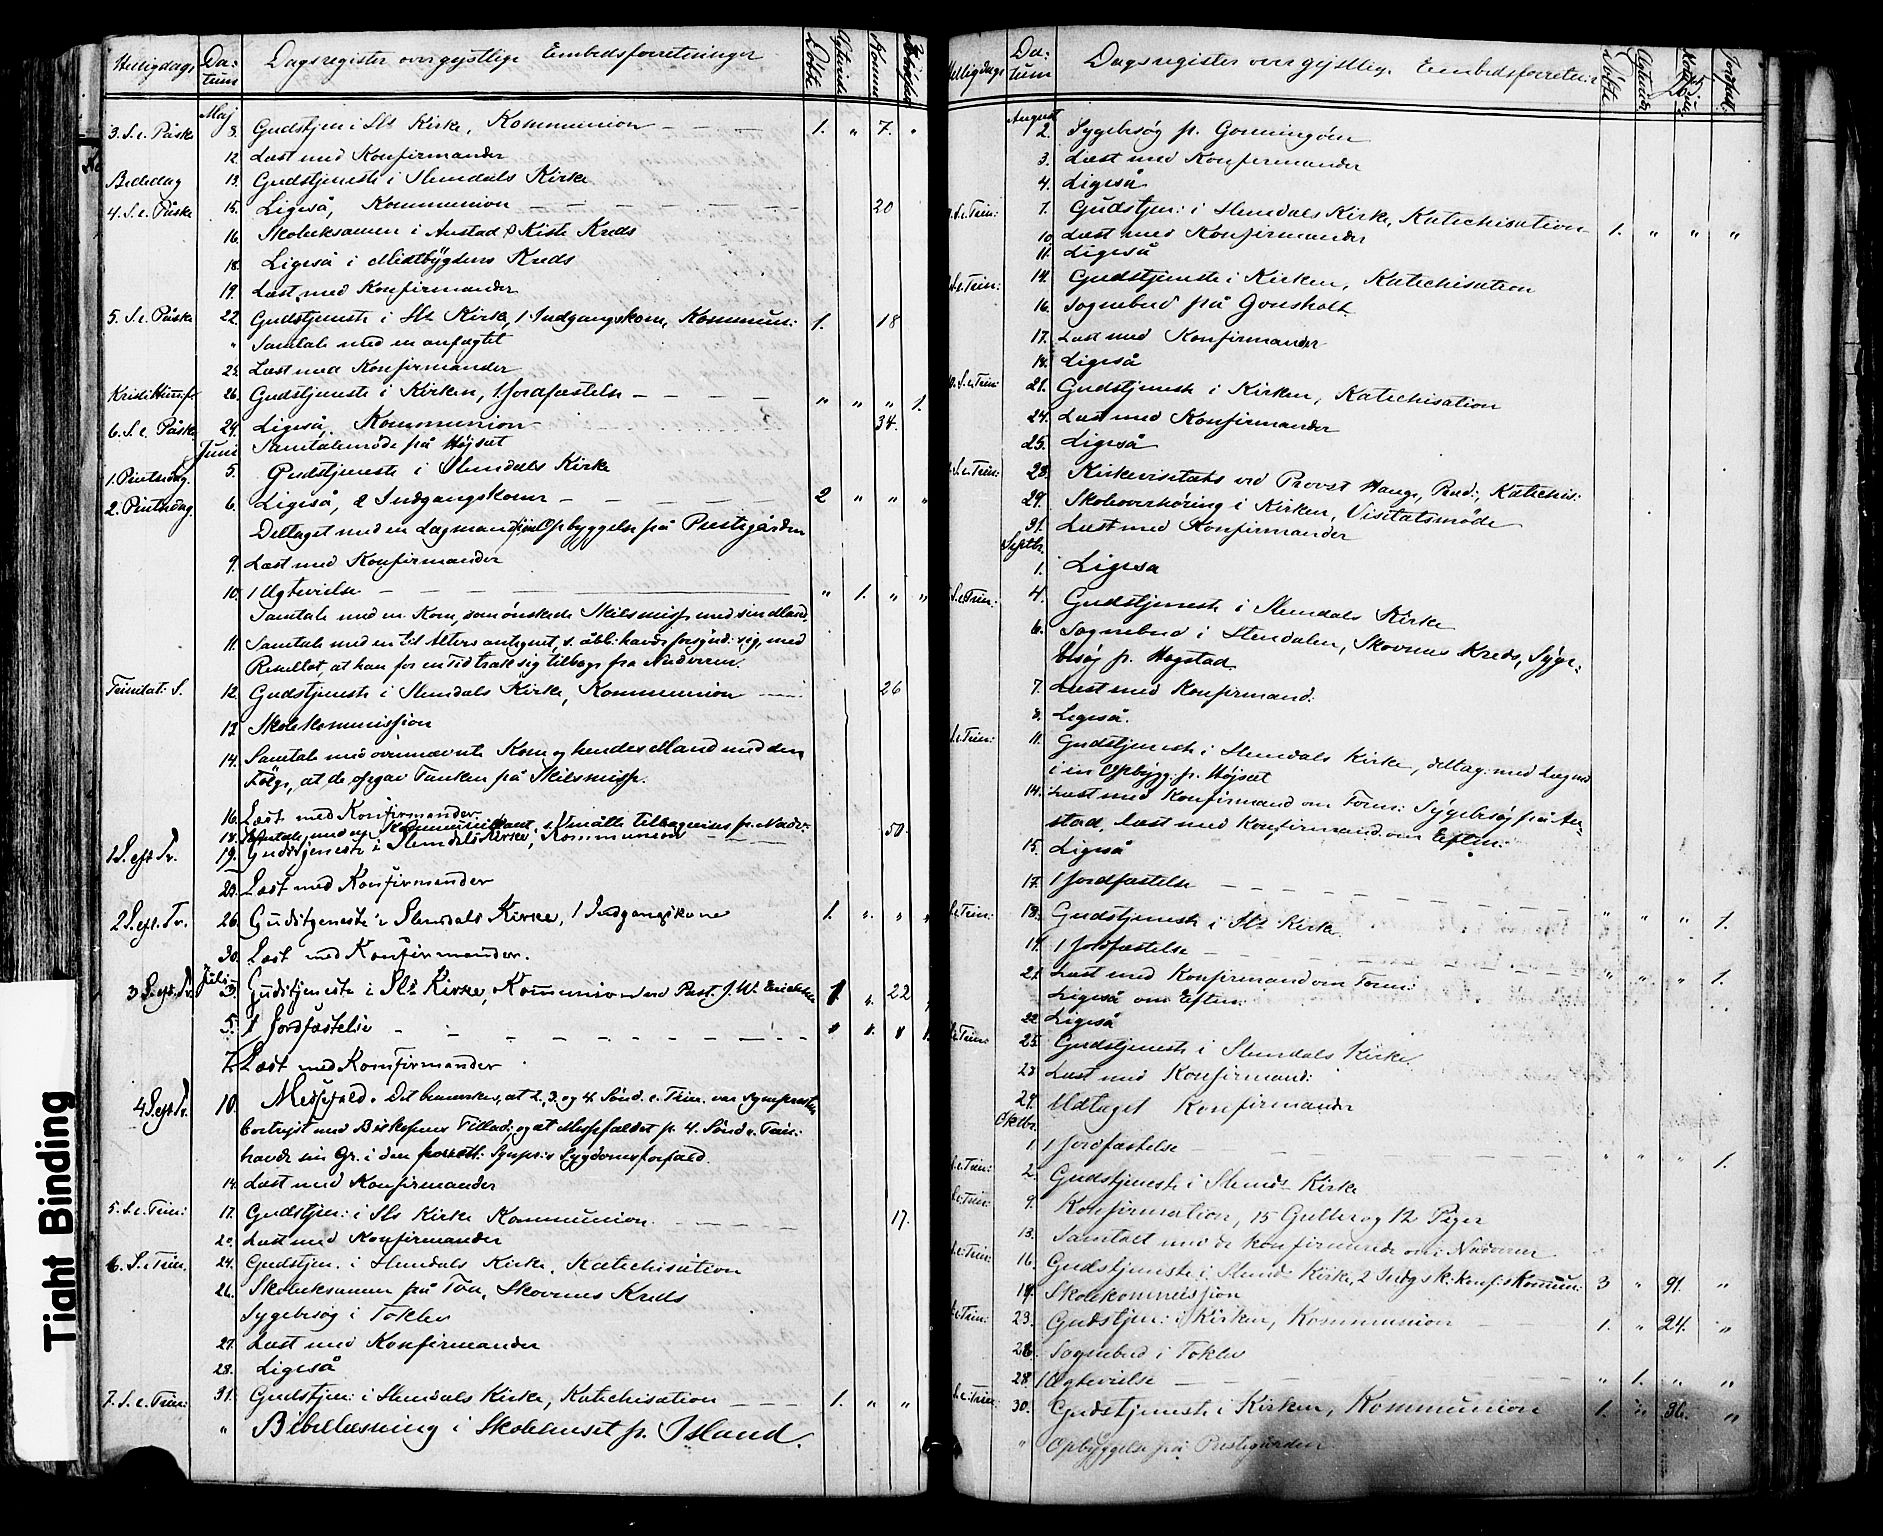 Helligdag Datum Dagsregister over gejstlige Embedsforretninger Døbte Ægteviede Komm.
Maj
3. S. e. Påske 8. Gudstjen i Sls Kirke, Kommunion 1. " 7. "
12. Læst med Konfirmander
Bededag 13. Gudstjeneste i Slemdals Kirke
4. S. e. Påske 15. Ligeså, Kommunion 20
16. Skoleeksamen i Austad & Kiste Kreds
18. Ligeså i Midtbygdens Kreds
19. Læst med Konfirmander
5. S. e. Påske 22. Gudstjeneste i Sls Kirke, 1 Indgangskone, Kommun: 1. 18
" Samtale med en anfægtet
25. Læst med Konfirmander
Kristi Himmf. 26. Gudstjeneste i Kirken, 1 Jordfæstelse " " " 1.
6. S. e. Påske 29. Ligeså, Kommunion 34.
Juni Samtalemøde på Højsæt
1. Pintsedag. 5. Gudstjeneste i Slemdals Kirke
2. Pintsedag. 6. Ligeså, 2 Indgangskoner 2 " " "
Deltaget med en Lægmand i en Opbyggelse på Prestegården
9. Læst med Konfirmander
10. 1 Ægtevielse " 1. " "
Samtale med en Kone, som ønskede Skilsmisse med sin Mand.
11. Samtale med en til Alters antegnet, s. åbl: havde forsynd: sig, med
Resultat, at han for en Tid trak sig tilbage fra Nadveren.
Trinitat. S. 12. Gudstjeneste i Slemdals Kirke, Kommunion 26
13. Skolekommission
14. Samtale med ovennævnte Kone og hendes Mand med den
Følge, at de opgav Tanken på Skilsmisse.
16. Læst med Konfirmander.
18. Samtale med en Kommunikant, s. Anmälte Tilbagevises fr. Nadv.
1 S. eft. Tr. 19. Gudstjeneste i Slemdals Kirke, Kommunion 50.
23. Læst med Konfirmander
2 S. eft. Tr. 26. Gudstjeneste i Slemdals Kirke, 1 Indgangskone 1. " " "
30. Læst med Konfirmander.
Juli
3 S. eft. Tr. 3. Gudstjeneste i Sls Kirke, Kommunion ved Past. J. W. 1 " 22
5. 1 Jordfæstelse " " " 1.
7. Læst med Konfirmander
4 S. eft. Tr. 10. Messefald. Det bemærkes, at 2, 3. og 4 Sønd. e. Trin. var Sognepresten
bortrejst med Biskopens Tillad: og at Messefaldet p. 4. Sønd e. Trin:
havde sin Gr. i den Sognpr:s Sygdomsforfald.
14. Læst med Konfirmander
5. S. e. Trin: 17. Gudstjen: i Sls Kirke Kommunion. 17.
20 Læst med Konfirmander
6. S. e. Trin. 24. Gudstjen. i Slemdals Kirke, Katechisation
26. Skoleeksamen på Tån, Skovenes Kreds
Sygebesøg i Toklev
27. Læst med Konfirmander
28. Ligeså
7. S. e. Trin: 31. Gudstjen: i Slemdals Kirke, Katechisation 1. " "
" Bibellæsning i Skolehuset p. Island.
Helligdage Datum Dagsregister over gejstlige Embedsforretn: Døbte Ægteviede Jordfæst.
265
August
2. Sygebesøg p. Gonningöen
3. Læst med Konfirmander
4. Ligeså
S. e. Trin: 7. Gudstjen: i Slemdals Kirke, Katechisation 1. " " "
10. Læst med Konfirmander
11. Ligeså
S. e. Trin: 14. Gudstjeneste i Kirken, Katechisation
16. Sognebud på Gonsholt
17. Læst med Konfirmander
18. Ligeså
S. e. Trin: 21. Gudstjeneste i Kirken, Katechisation
24. Læst med Konfirmander
25. Ligeså
S. e. Trin: 28. Kirkevisitats ved Provst Hauge, Præd:, Katechis:
29. Skoleoverhøring i Kirken, Visitatsmøde
31. Læst med Konfirmander
Septbr.
1. Ligeså
S. e. Trin: 4. Gudstjeneste i Slemdals Kirke
6. Sognebud i Slemdalen, Skovenes Kreds, Syge-
besøg p. Hogstad.
7. Læst med Konfirmand:
8. Ligeså.
S. e. Trin: 11. Gudstjeneste i Slemdals Kirke, deltag: med Lægmd
i en Opbygg. p. Højsæt
14. Læst med Konfirmand om Form: Sygebesøg på Au-
stad, læst med Konfirmand. om Efterm:
15. Ligeså
17. 1 Jordfæstelse
S. e. Trin: 18. Gudstjeneste i Sls Kirke " " " 1.
19. 1 Jordfæstelse
21. Læst med Konfirmand om Form: " " " 1.
Ligeså om Efterm:
22. Ligeså
S. e. Trin: 25. Gudstjeneste i Slemdals Kirke
28 Læst med Konfirmand:
29. Udtaget Konfirmander
Oktbr.
1. 1 Jordfæstelse " " " 1.
S. e. Trin: 2. Gudstjeneste i Slemds Kirke
S. e. Trin: 9. Konfirmation, 15 Gutter og 12 Piger
13. Samtalt med de konfirmerede om Nadveren
S. e. Trin: 16. Gudstjeneste i Slemds Kirke, 2 Indg.sk: konf:s Kommun: 3 " 91. "
19. Skolekommission
S. e. Trin: 23. Gudstjen: i Kirken, Kommunion 1. " 24. "
26. Sognebud i Toklev
28. 1 Ægtevielse " 1. " "
S. e. Trin: 30. Gudstjeneste i Kirken, Kommunion 1. " 36. "
" Opbyggelse på Prestegården
Tight Binding